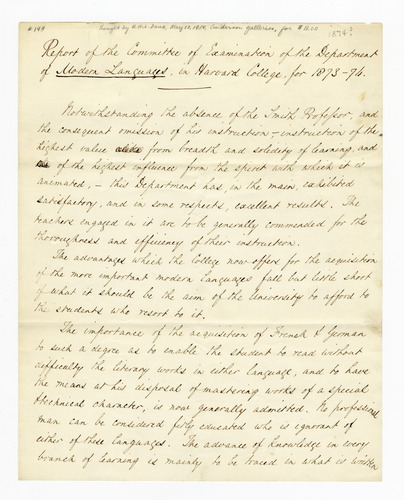 #144
Bought by H.W.L. Dana, May 12, 1914, Anderson Galleries, for $11.00
1874?
Report of the Committee of Examination of the Department
of Modern Languages, in Harvard College, for 1873-74.
Notwithstanding the absence of the Smith Professor, and
the consequent omission of his instruction, – instruction of the
highest value from breadth and solidity of learning, and
of the highest influence from the spirit with which it is
animated, – this Department has, in the main, exhibited
satisfactory, and in some respects, excellent results. The
teachers engaged in it are to be generally commended for the
thoroughness and efficiency of their instruction.
The advantages which the College now offers for the acquisition
of the more important modern languages fall but little short
of what it should be the aim of the University to afford to
the students who resort to it.
The importance of the acquisition of French & German
to such a degree as to enable the student to read without
difficulty the literary works in either language, and to have
the means at his disposal of mastering works of a special
& technical character, is now generally admitted. No professional
man can be considered fitly educated who is ignorant of
either of these languages. The advance of knowledge in every
branch of learning is mainly to be traced in what is written